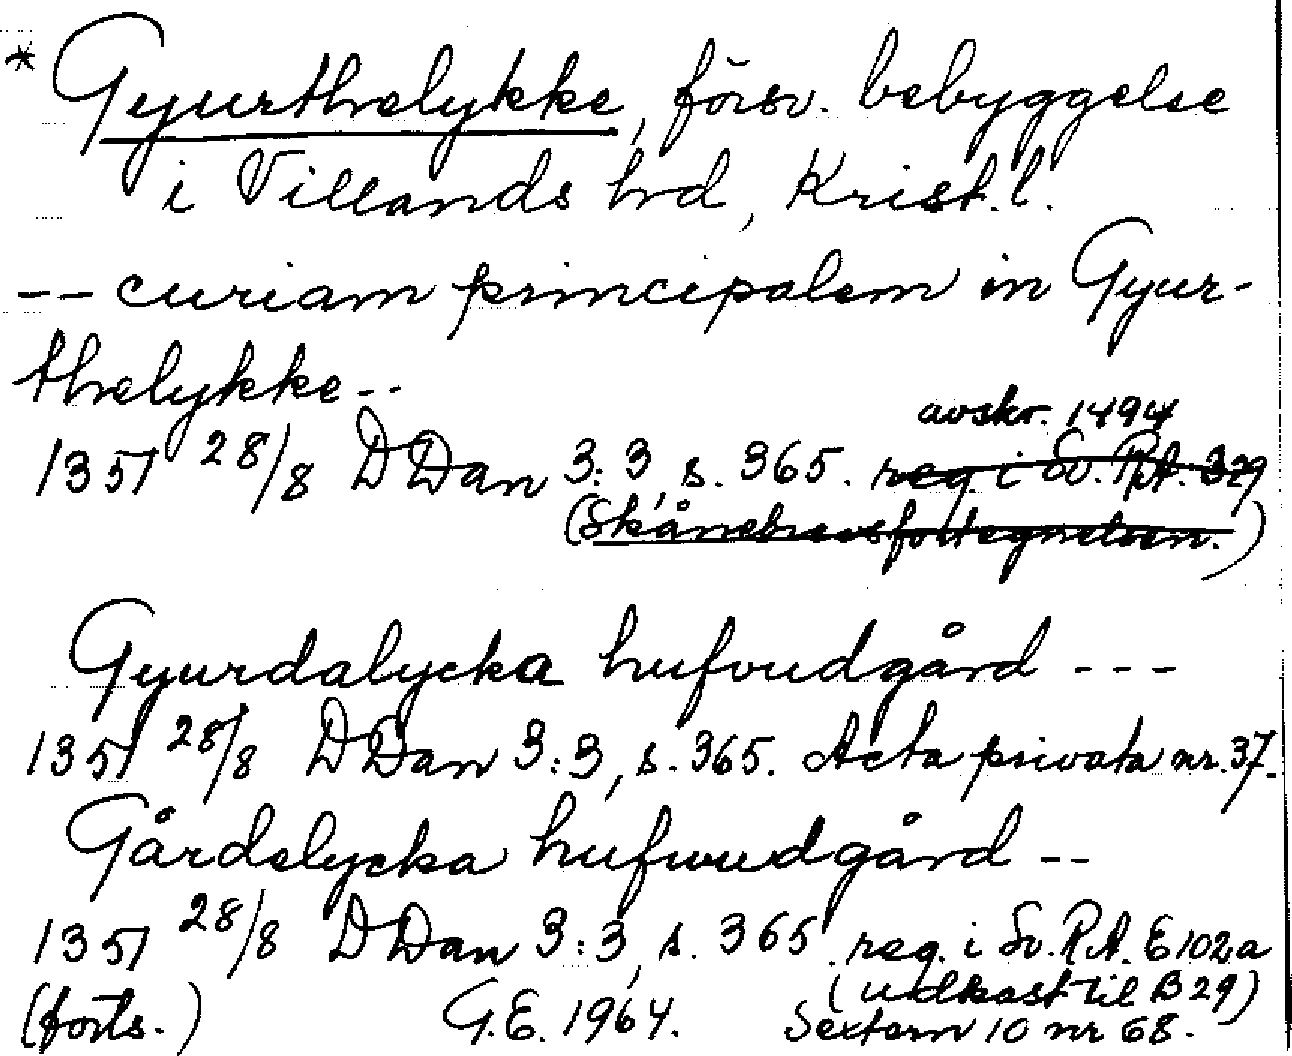 * Gyurthelykke, försv. bebyggelse
i Villands hrd, Krist.l.
-- curiam principalem in Gyur-
thelykke --
avskr. 1494
1351 28/8 DDan 3:3, s. 365. reg. i Sv. RA. B29
(Skånebrevsfortegnelsen.)
Gyurdalycka hufvudgård ---
1351 28/8 DDan 3:3, s. 365. Acta privata nr. 37.
Gårdelycka hufwudgård --
1351 28/8 DDan 3:3, s. 365. reg. i Sv. RA. E102a
(udkast til B29)
(forts.) G.E. 1964. Sextern 10 nr 68.